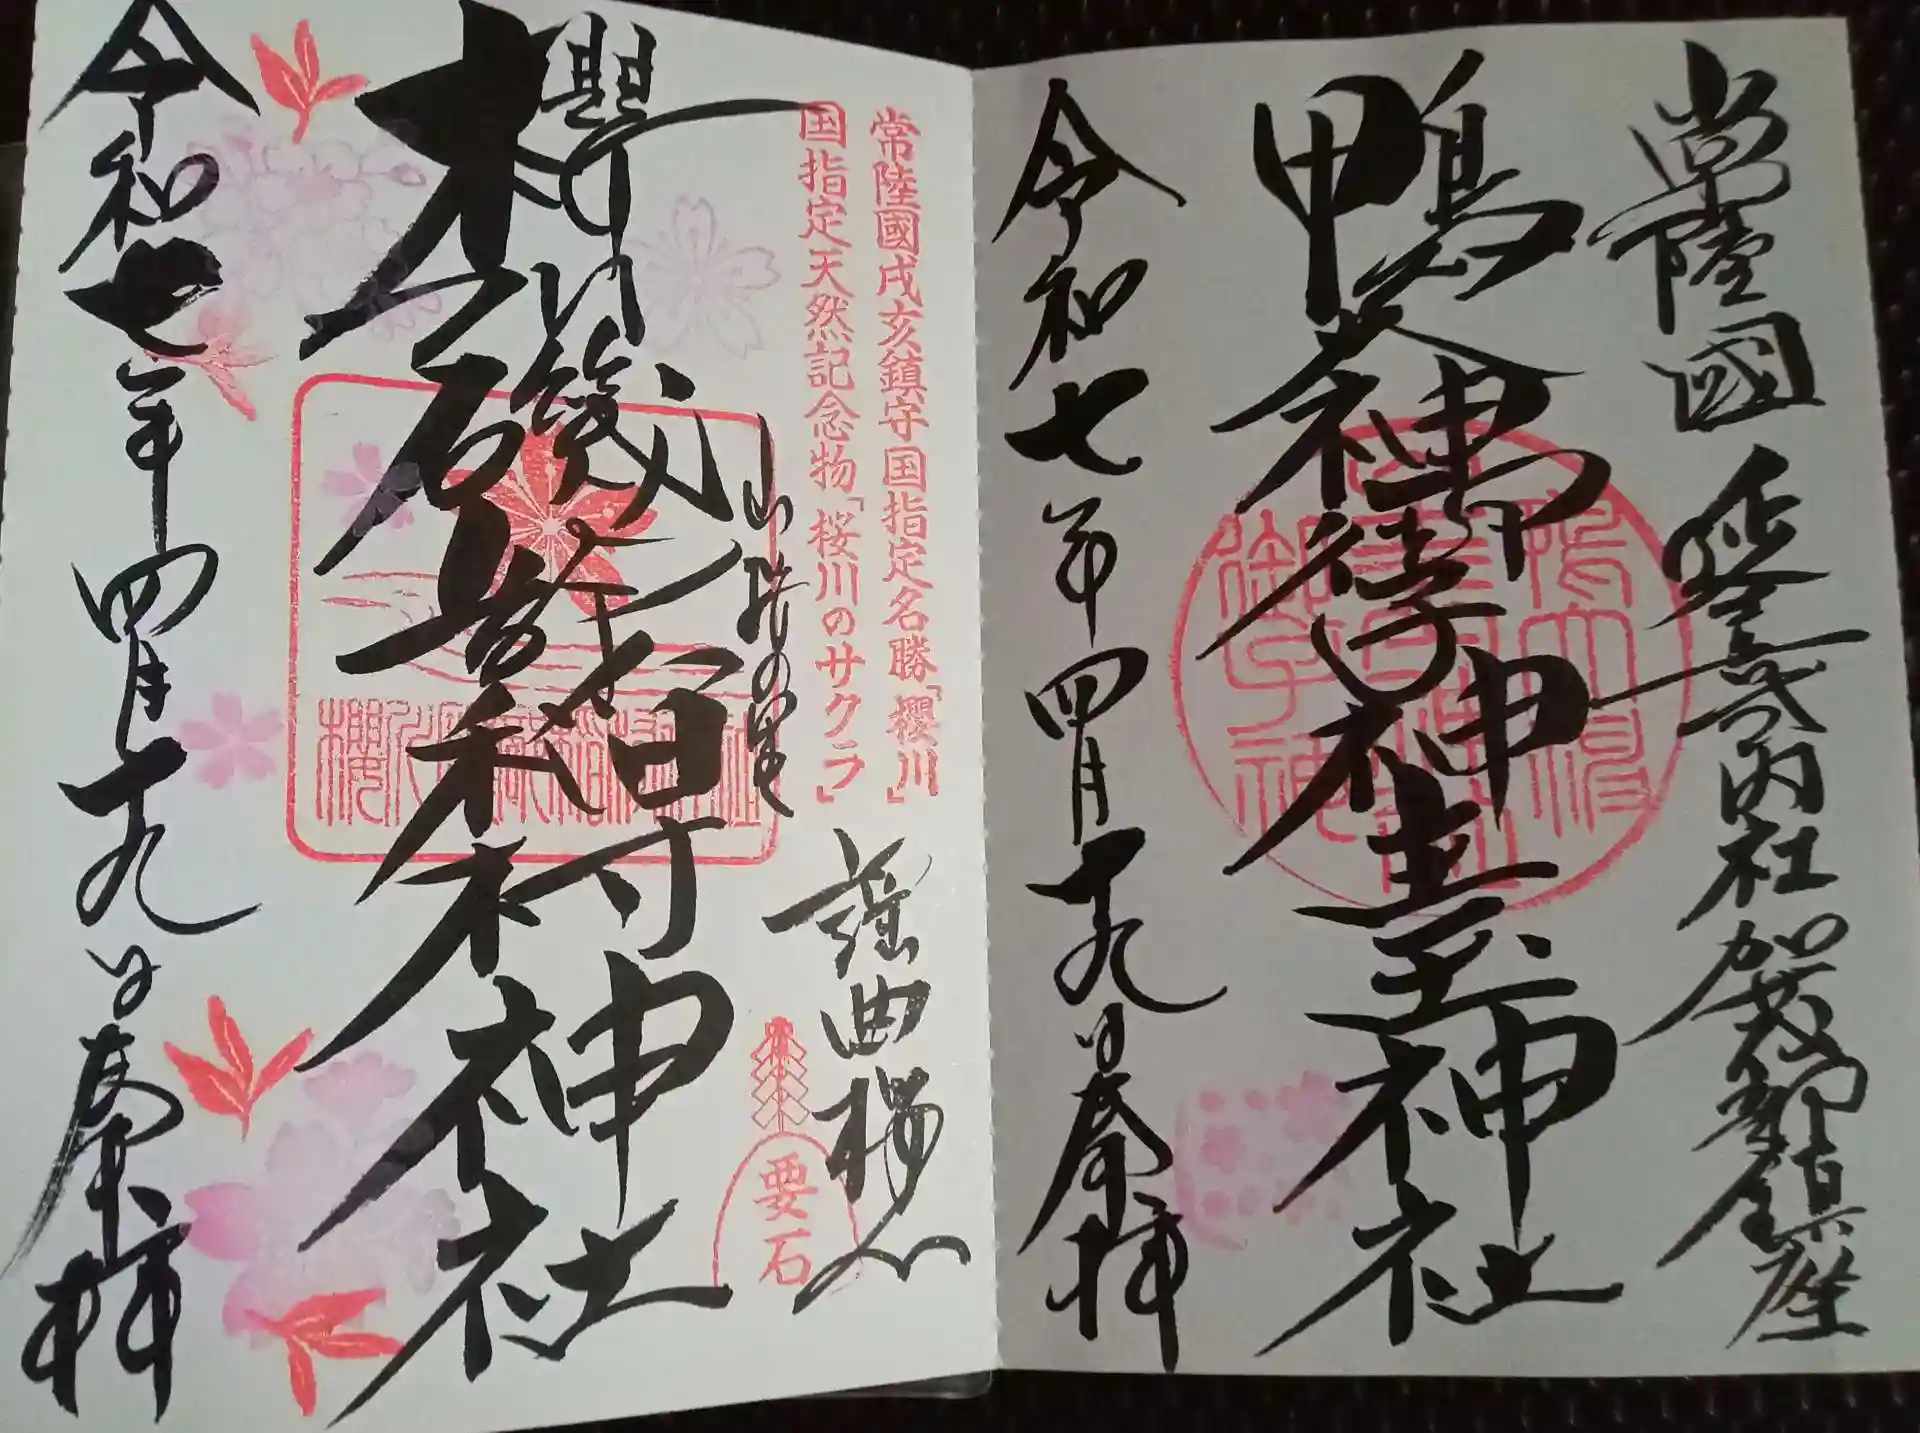 常陸國
延喜式内社加茂部鎮座
鴨大神御子神主玉神社
令和七年四月十九日奉拝
常陸國戌亥鎮守国指定名勝「櫻川」
国指定天然記念物「桜川のサクラ」
謡曲櫻川
山桜の里
要石
櫻川磯部稲村神社
令和七年四月十九日奉拝